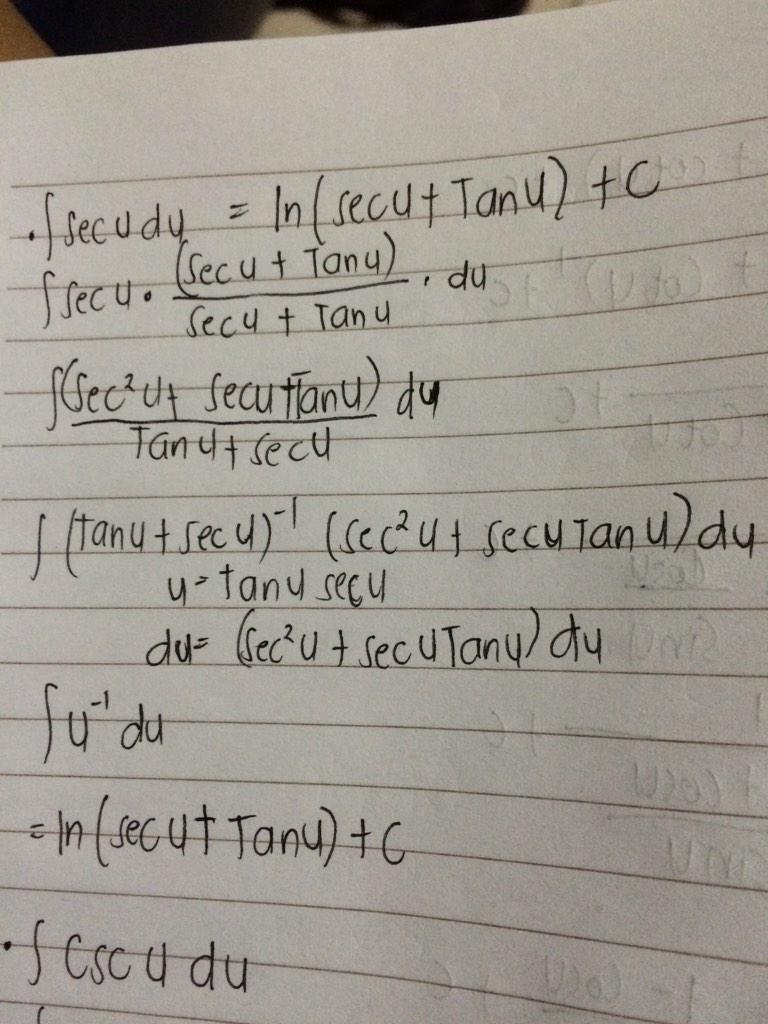 . ∫ sec u du = ln (sec u + Tan u) + C
∫ sec u • (sec u + Tan u) / sec u + Tan u . du
∫ (sec² u + sec u + Tan u) / Tan u + sec u du
∫ (Tan u + sec u)⁻¹ (sec² u + sec u Tan u) du
u = tan u sec u
du = (sec² u + sec u Tan u) du
∫ u⁻¹ du
= ln (sec u + Tan u) + C
• ∫ csc u du